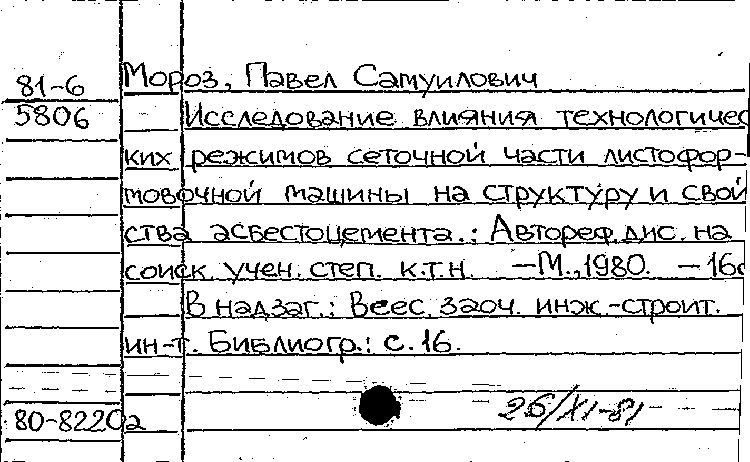 81-6 Мороз, Павел Самуилович
5806 Исследование влияния технологичес
ких режимов сеточной части листофор-
мовочной машины на структуру и свой
ства асбестоцемента.: Автореф. дис. на
соиск. учен. степ. к.т.н. —М., 1980. — 16с
В надзаг.: Веес. заоч. инж.-строит.
ин-т. Библиогр.: с. 16.
80-82202 26/XI-81